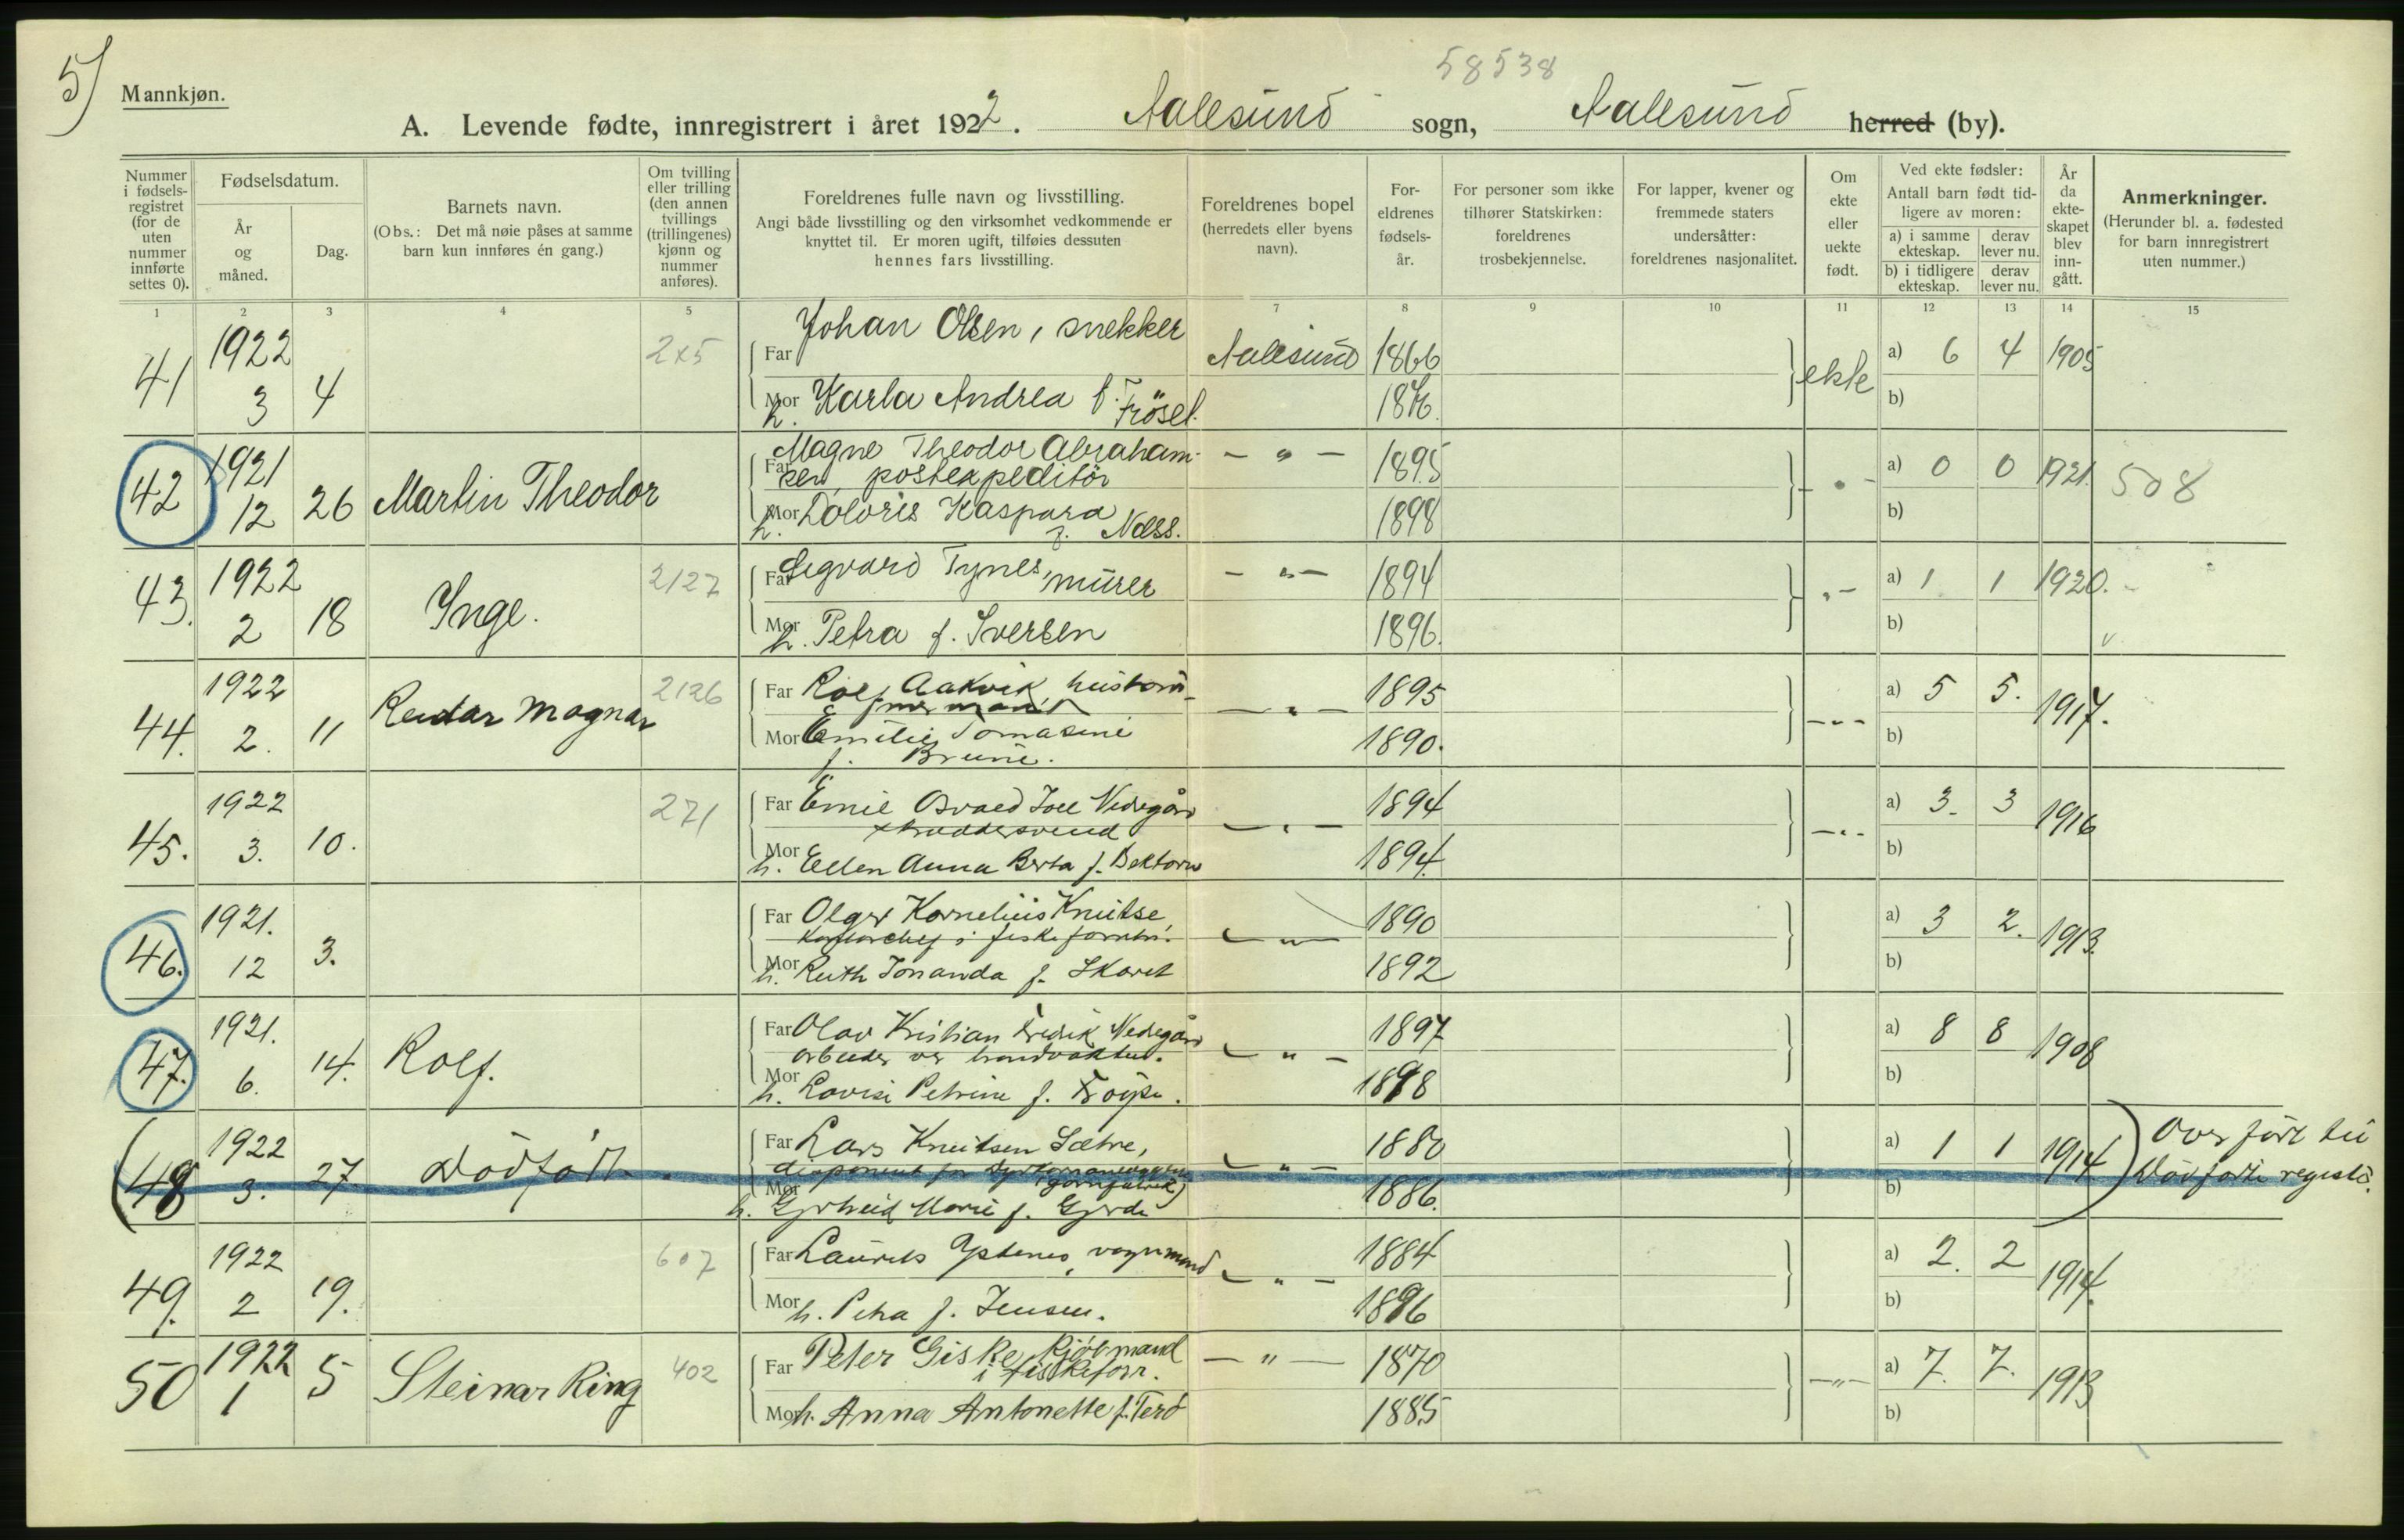 5)
58538
Mannkjøn.
A. Levende fødte, innregistrert i året 1922. Aalesund sogn, Aalesund herred (by).
Nummer i fødsels-registret (for de uten nummer innførte settes 0).
Fødselsdatum.
År og måned.
Dag.
Barnets navn.
(Obs.: Det må nøie påses at samme barn kun innføres én gang.)
Om tvilling eller trilling (den annen tvillings (trillingenes) kjønn og nummer anføres).
Foreldrenes fulle navn og livsstilling.
Angi både livsstilling og den virksomhet vedkommende er knyttet til. Er moren ugift, tilføies dessuten hennes fars livsstilling.
Foreldrenes bopel (herredets eller byens navn).
For-eldrenes fødsels-år.
For personer som ikke tilhører Statskirken: foreldrenes trosbekjennelse.
For lapper, kvener og fremmede staters undersåtter: foreldrenes nasjonalitet.
Om ekte eller uekte født.
Ved ekte fødsler: Antall barn født tid-ligere av moren:
a) i samme ekteskap.
derav lever nu.
b) i tidligere ekteskap.
derav lever nu.
År da ekte-skapet blev inn-gått.
Anmerkninger.
(Herunder bl. a. fødested for barn innregistrert uten nummer.)
1 2 3 4 5 7 8 9 10 11 12 13 14 15
41 1922 3 4
Far Johan Olsen, snekker Aalesund 1866 ekte a) 6 4 1905
Mor h. Karla Andrea f. Frøsel. 1876. b)
42 1921 12 26 Martin Theodor
Far Magne Theodor Abraham-
sen, postexpeditør - " - 1895 - " - a) 0 0 1921. 508
Mor h. Doloris Kaspara f. Næss. 1898 b)
43. 1922 2 18 Inge. 2127
Far Segvard Tynes, murer - " - 1894 " - a) 1 1 1920.
Mor h. Petra f. Iversen 1896. b)
44. 1922 2. 11 Reidar Magnar 2126
Far Rolf Aakvik - " - 1895 - " - a) 5 5. 1917.
Mor Emilie Tomasine 1890. b)
f. Brune.
45. 1922 3. 10. 271
Far Emil Osvald Joel Nedregård - " - 1894 - " - a) 3. 3 1916
Mor h. Ellen Anna Berta f. 1894. b)
46. 1921. 12 3.
Far Olger Kornelius Knutse - " - 1890 a) 3 2. 1913.
Kontorchef i fiskeforretn.
Mor h. Ruth Jonanda f. Skaret 1892 b)
47. 1921. 6. 14. Rolf.
Far Olav Kristian Fredrik Nedregård - " - 1897 a) 8 8 1908
Mor h. Lovise Petrine f. 1898 b)
(48 1922 3. 27. Dødfødt.
Far Lars Knutsen Sætre, - " - 1880 a) 1 1 1914) Overført til
Mor h. Marie f. Gjerde 1886. b) dødfødte regist.
49. 1922 2 19. 607
Far Laurits Ystenes, vognmand - " - 1884 a) 2. 2 1914.
Mor h. Petra f. Jensen. 1896 b)
50 1922 1 5 Steinar Ring 402
Far Peter Giske, Kjøbmand - " - 1870 - " - a) 7. 7. 1913
i fiskeforr.
Mor h. Anna Antonette f. Terø 1885 b)